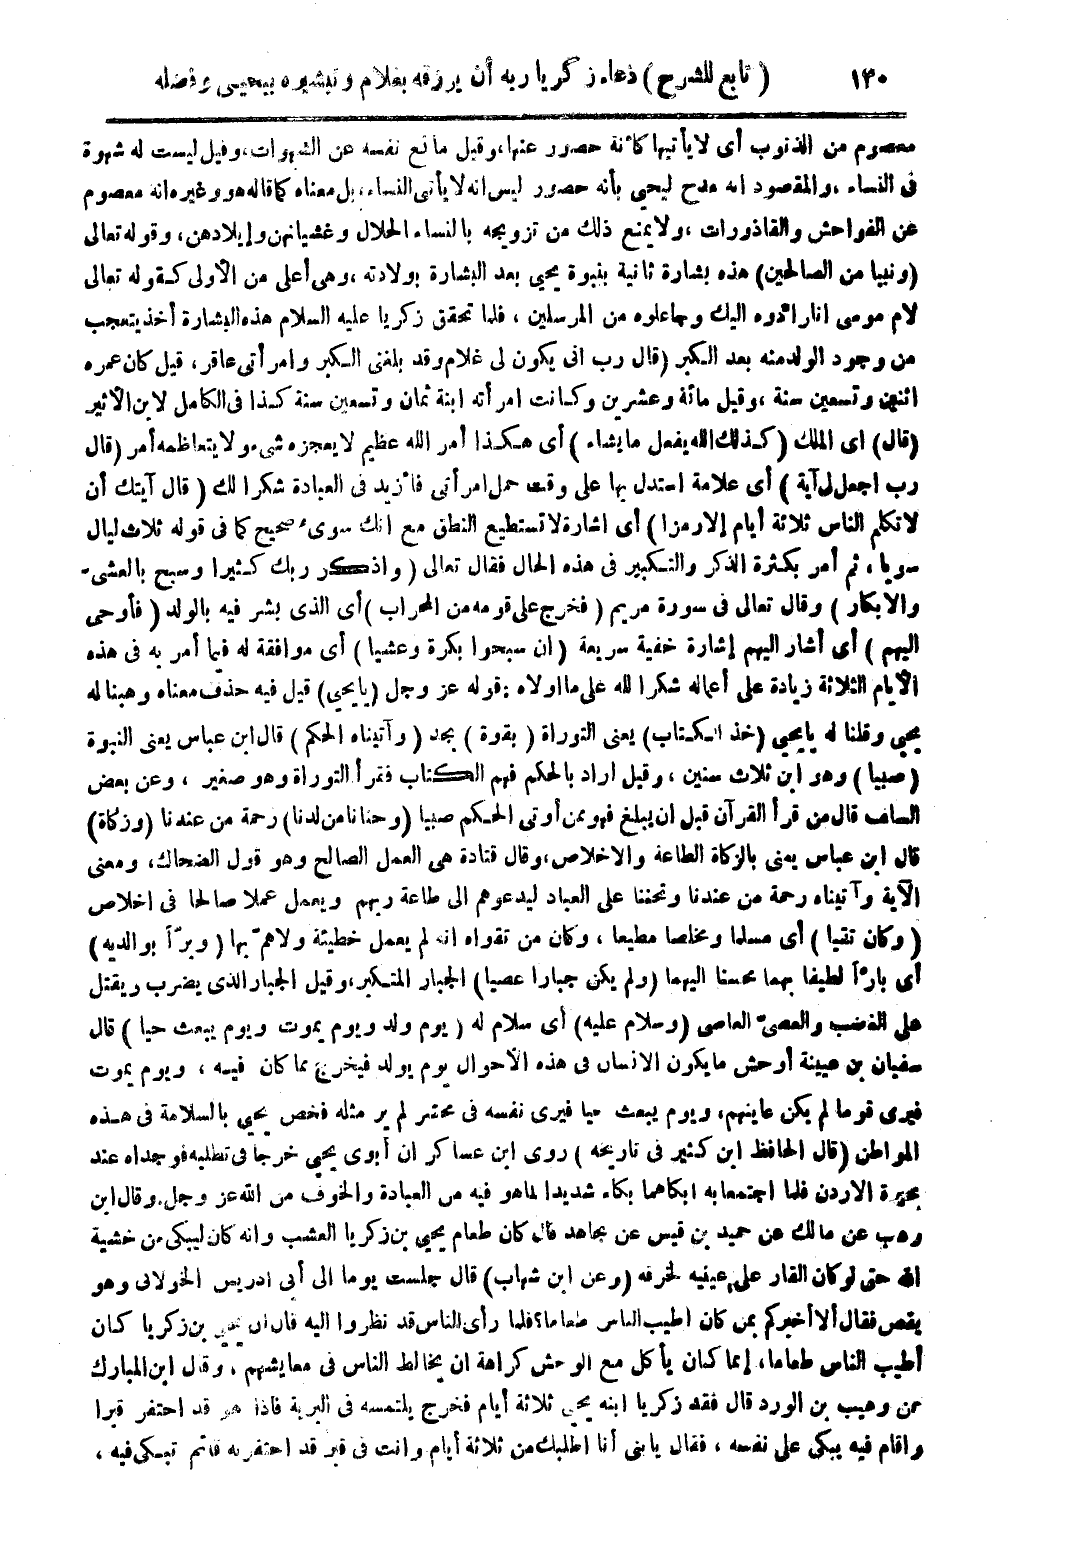 ١٣٠ ( تابع للشرح ) دعاء زكريا ربه أن يرزقه بغلام وتبشيره بيحيى وفضله
معصوم من الذنوب أى لا يأتيها كأنة حصور عنها، وقيل مانع نفسه عن الشهوات، وقيل ليست له شهوة
فى النساء ، والمقصود انه مدح ليحيى بأنه حصور ليس انه لا يأتى النساء، بل معناه كما قاله هو وغيره انه معصوم
عن الفواحش والقاذورات ، ولا يمنع ذلك من تزويجه بالنساء الحلال وغشيانهن وإيلادهن، وقوله تعالى
(ونبيا من الصالحين) هذه بشارة ثانية بنبوة يحيى بعد البشارة بولادته ، وهى أعلى من الأولى كقوله تعالى
لام موسى انا رادوه اليك وجاعلوه من المرسلين ، فلما تحقق زكريا عليه السلام هذه البشارة أخذ يتعجب
من وجود الولد منه بعد الكبر (قال رب انى يكون لى غلام وقد بلغنى الكبر وامرأتى عاقر، قيل كان عمره
اثنين وتسعين سنة ، وقيل مائة وعشرين وكانت امرأته ابنة ثمان وتسعين سنة كذا فى الكامل لابن الأثير
(قال) اى الملك ( كذلك الله يفعل ما يشاء ) أى هكذا أمر الله عظيم لا يعجزه شىء ولا يتعاظمه أمر (قال
رب اجعل لى آية ) أى علامة استدل بها على وقت حمل امرأتى فأزيد فى العبادة شكرا لك ( قال آيتك أن
لا تكلم الناس ثلاثة أيام إلا رمزا ) أى اشارة لا تستطيع النطق مع انك سوى صحيح كما فى قوله ثلاث ليال
سويا ، ثم أمر بكثرة الذكر والتكبير فى هذه الحال فقال تعالى ( واذكر ربك كثيرا وسبح بالعشى
والابكار ) وقال تعالى فى سورة مريم ( فخرج على قومه من المحراب ) أى الذى بشر فيه بالولد ( فأوحى
اليهم ) أى أشار اليهم إشارة خفية سريعة ( ان سبحوا بكرة وعشيا ) أى موافقة له فيما أمر به فى هذه
الأيام الثلاثة زيادة على أعماله شكرا لله على ما اولاه ، قوله عز وجل (يايحيى) قيل فيه حذف معناه وهبنا له
يحيى وقلنا له يايحيى (خذ الكتاب) يعنى التوراة ( بقوة ) بجد ( وآتيناه الحكم ) قال ابن عباس يعنى النبوة
( صبيا ) وهو ابن ثلاث سنين ، وقيل اراد بالحكم فهم الكتاب فقرأ التوراة وهو صغير ، وعن بعض
السلف قال من قرأ القرآن قبل ان يبلغ فهو ممن أوتى الحكم صبيا (وحنانا من لدنا) رحمة من عندنا (وزكاة)
قال ابن عباس يعنى بالزكاة الطاعة والاخلاص، وقال قتادة هى العمل الصالح وهو قول الضحاك، ومعنى
الآية وآتيناه رحمة من عندنا وتحننا على العباد ليدعوهم الى طاعة ربهم ويعمل عملا صالحا فى اخلاص
( وكان تقيا ) أى مسلما ومخلصا مطيعا ، وكان من تقواه انه لم يعمل خطيئة ولا همّ بها ( وبرّاً بوالديه )
أى بارّاً لطيفا بهما محسنا اليهما (ولم يكن جبارا عصيا) الجبار المتكبر، وقيل الجبار الذى يضرب ويقتل
على الغضب والعصىّ العاصى (وسلام عليه) أى سلام له ( يوم ولد ويوم يموت ويوم يبعث حيا ) قال
سفيان بن عيينة أوحش ما يكون الانسان فى هذه الأحوال يوم يولد فيخرج مما كان فيه ، ويوم يموت
فيرى قوما لم يكن عاينهم، ويوم يبعث حيا فيرى نفسه فى محشر لم ير مثله فخص يحيى بالسلامة فى هذه
المواطن (قال الحافظ ابن كثير فى تاريخه ) روى ابن عساكر ان أبوى يحيى خرجا فى تطلبه فوجداه عند
بحيرة الاردن فلما اجتمعا به ابكاهما بكاء شديدا لما هو فيه من العبادة والخوف من الله عز وجل. وقال ابن
وهب عن مالك عن حميد بن قيس عن مجاهد قال كان طعام يحيى بن زكريا العشب وانه كان ليبكى من خشية
الله حتى لو كان القار على عينيه لخرقه (وعن ابن شهاب) قال جلست يوما الى أبى ادريس الخولانى وهو
يقص فقال ألا أخبركم بمن كان اطيب الناس طعاما؟ فلما رأى الناس قد نظروا اليه قال ان يحيى بن زكريا كان
أطيب الناس طعاما، إنما كان يأكل مع الوحش كراهة ان يخالط الناس فى معايشهم ، وقال ابن المبارك
عن وهيب بن الورد قال فقد زكريا ابنه يحيى ثلاثة أيام فخرج يلتمسه فى البرية فاذا هو قد احتفر قبرا
واقام فيه يبكى على نفسه ، فقال يابنى أنا اطلبك من ثلاثة أيام وانت فى قبر قد احتفرته قائم تبكى فيه ،